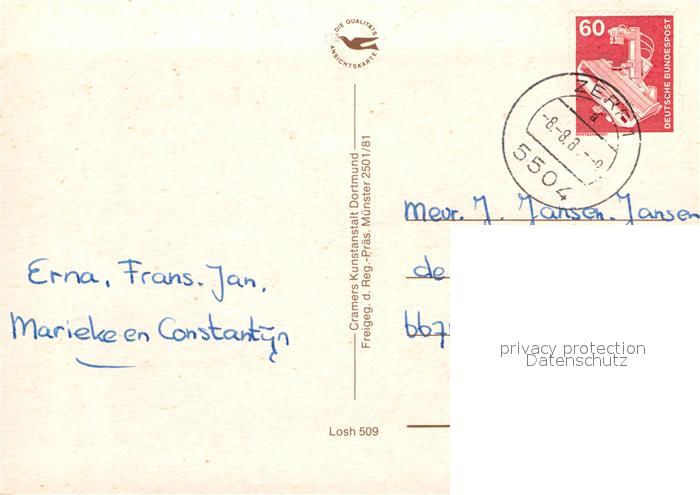 DIE QUALITÄTS
ANSICHTSKARTE
60
DEUTSCHE BUNDESPOST
ZERF 1
a
-8.-8.8
5504
Cramers Kunstanstalt Dortmund
Freigeg. d. Reg.-Präs. Münster 2501/81
Mevr. J. Jansen-Jansen
de
Erna, Frans. Jan,
Marieke en Constantijn
privacy protection
Datenschutz
Losh 509